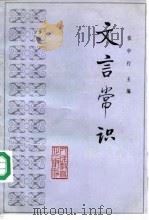 张中行主编
文言常识